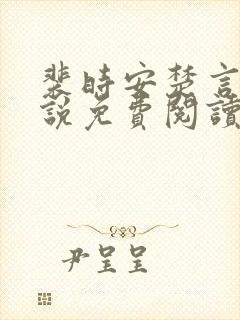 裴時安楚言
說免費閱讀
尹呈呈